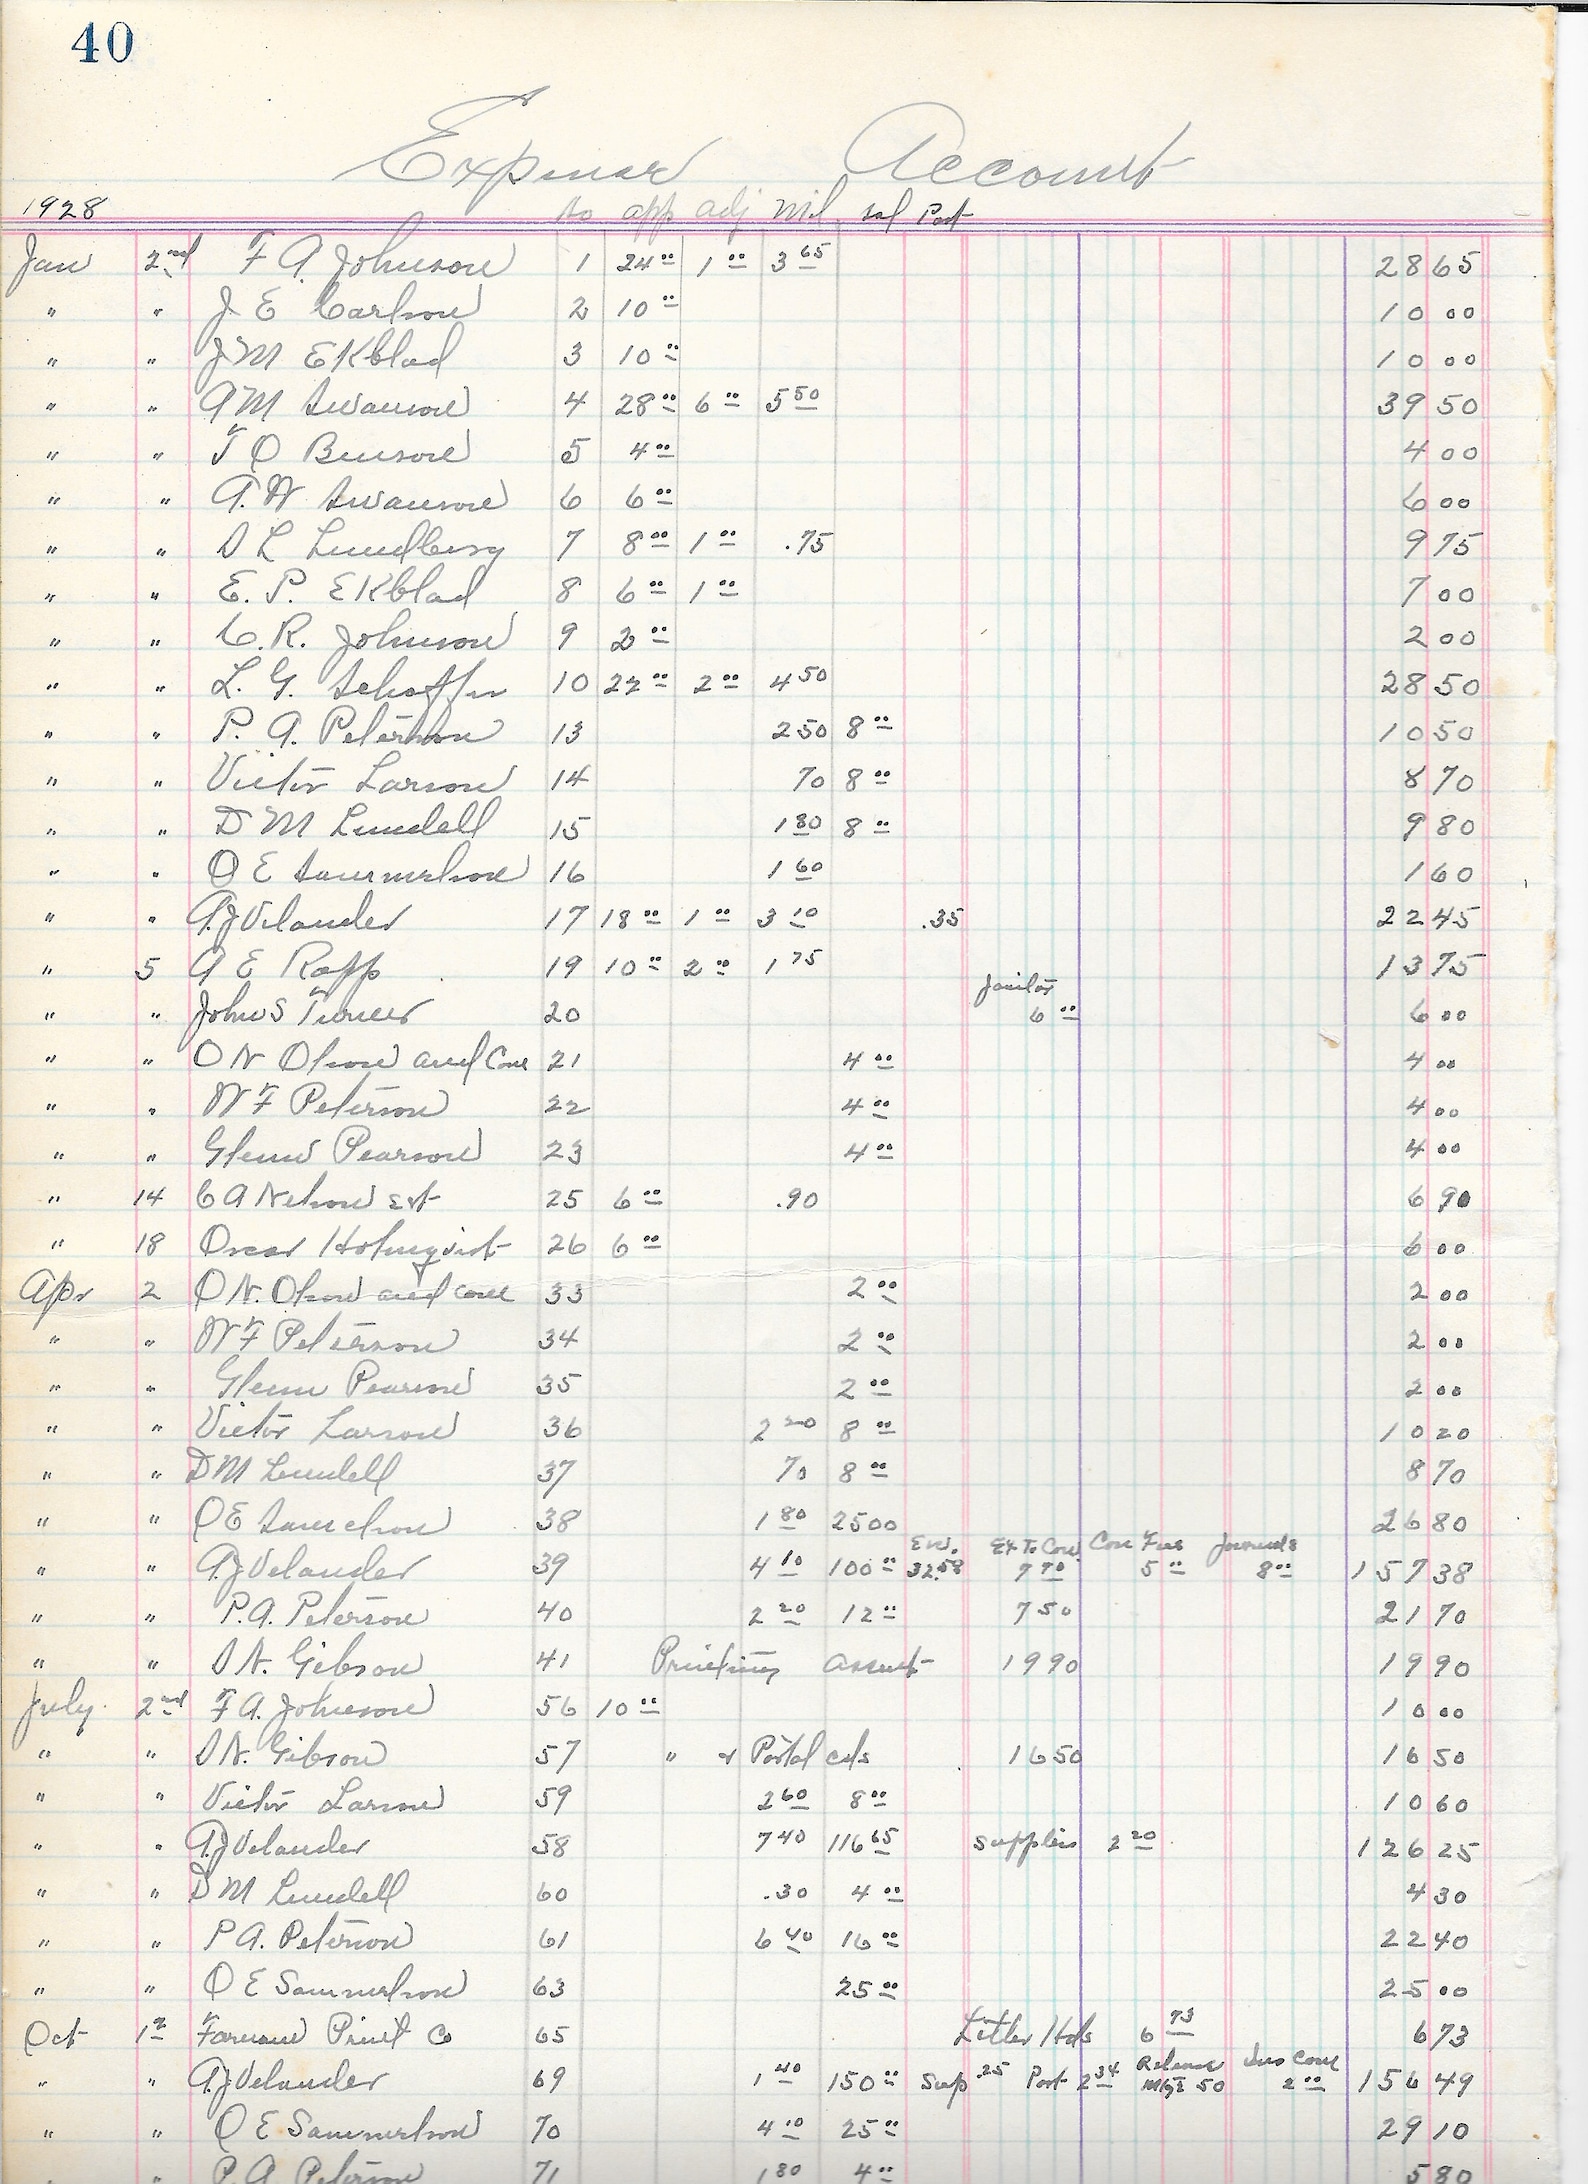 40
Expense Account
1928 to app adj Mil sal Post
Jan 2nd F A Johnson 1 24 00 1 00 3 65 28 65
" " J E Carlson 2 10 00 10 00
" " J M Ekblad 3 10 00 10 00
" " A M Swanson 4 28 00 6 00 5 50 39 50
" " T O Benson 5 4 00 4 00
" " A. W Swanson 6 6 00 6 00
" " D L Lundberg 7 8 00 1 00 .75 9 75
" " E. P. Ekblad 8 6 00 1 00 7 00
" " C. R. Johnson 9 2 00 2 00
" " L. G. Schaffer 10 22 00 2 00 4 50 28 50
" " P. A. Peterson 13 2 50 8 00 10 50
" " Victor Larson 14 70 8 00 8 70
" " D M Lundell 15 1 80 8 00 9 80
" " O E Samuelson 16 1 60 1 60
" " A. J Velander 17 18 00 1 00 3 10 .35 22 45
" 5 A E Rapp 19 10 00 2 00 1 75 13 75
Janitor
" " John S Turner 20 6 00 6 00
" " O N Olson and Com 21 4 00 4 00
" " W F Peterson 22 4 00 4 00
" " Glenn Pearson 23 4 00 4 00
" 14 C A Nelson Est 25 6 00 .90 6 90
" 18 Oscar Holmqvist 26 6 00 6 00
Apr 2 O N. Olson and com 33 2 00 2 00
" " W F Peterson 34 2 00 2 00
" " Glenn Pearson 35 2 00 2 00
" " Victor Larson 36 2 20 8 00 10 20
" " D M Lundell 37 70 8 00 8 70
" " O E Samuelson 38 1 80 25 00 26 80
Ex To Con Con Fees Journals
" " A. J Velander 39 4 10 100 00 32.58 7 70 5 00 8 00 157 38
" " P. A. Peterson 40 2 20 12 00 7 50 21 70
" " D N. Gibson 41 Printing 19 90 19 90
July 2nd F A. Johnson 56 10 00 10 00
" " D N. Gibson 57 " & Postal cds 16 50 16 50
" " Victor Larson 59 2 60 8 00 10 60
" " A. J Velander 58 7 40 116 65 supplies 2 20 126 25
" " D M Lundell 60 .30 4 00 4 30
" " P A. Peterson 61 6 40 16 00 22 40
" " O E Samuelson 63 25 00 25 00
Oct 1st Print Co 65 Letter Hds 6 73 6 73
Release Ins Com
" " A. J Velander 69 1 40 150 00 Sup .25 Post 2 34 Mtg 50 2 00 156 49
" " O E Samuelson 70 4 10 25 00 29 10
" " P. A. Peterson 71 1 80 4 00 5 80